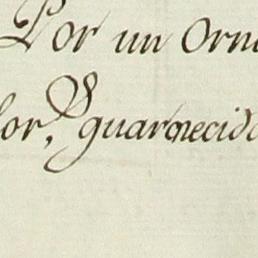 Por un Orn
lor, y guarnecido